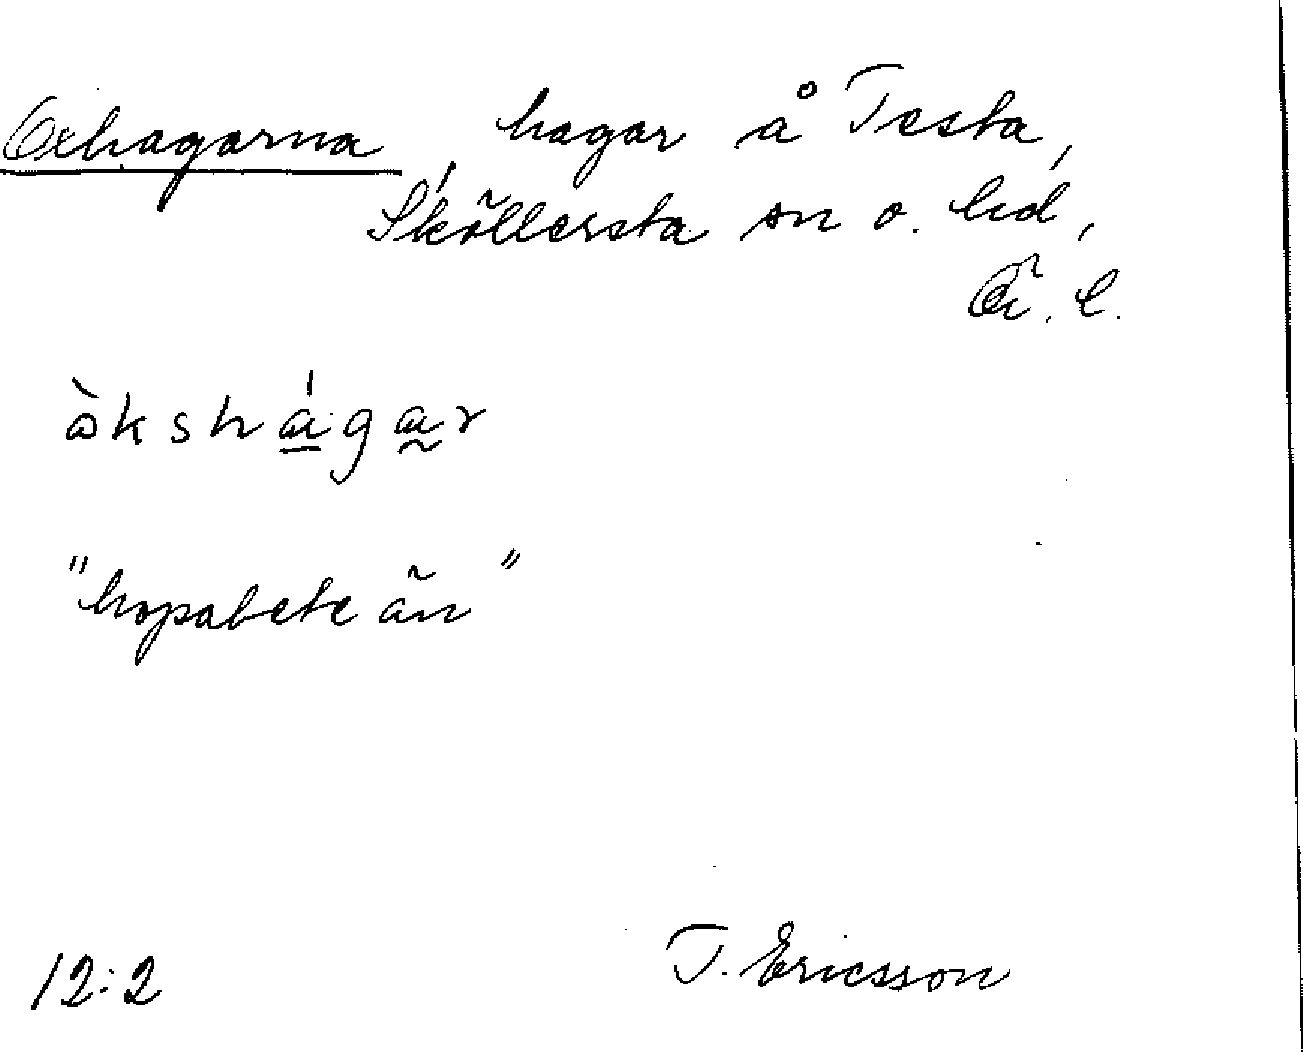 Oxhagarna, hagar å Testa,
Sköllersta sn o. hd,
Ör. l.
òkshá̱·ga̰r
"hopabete än"
12:2 T. Ericsson